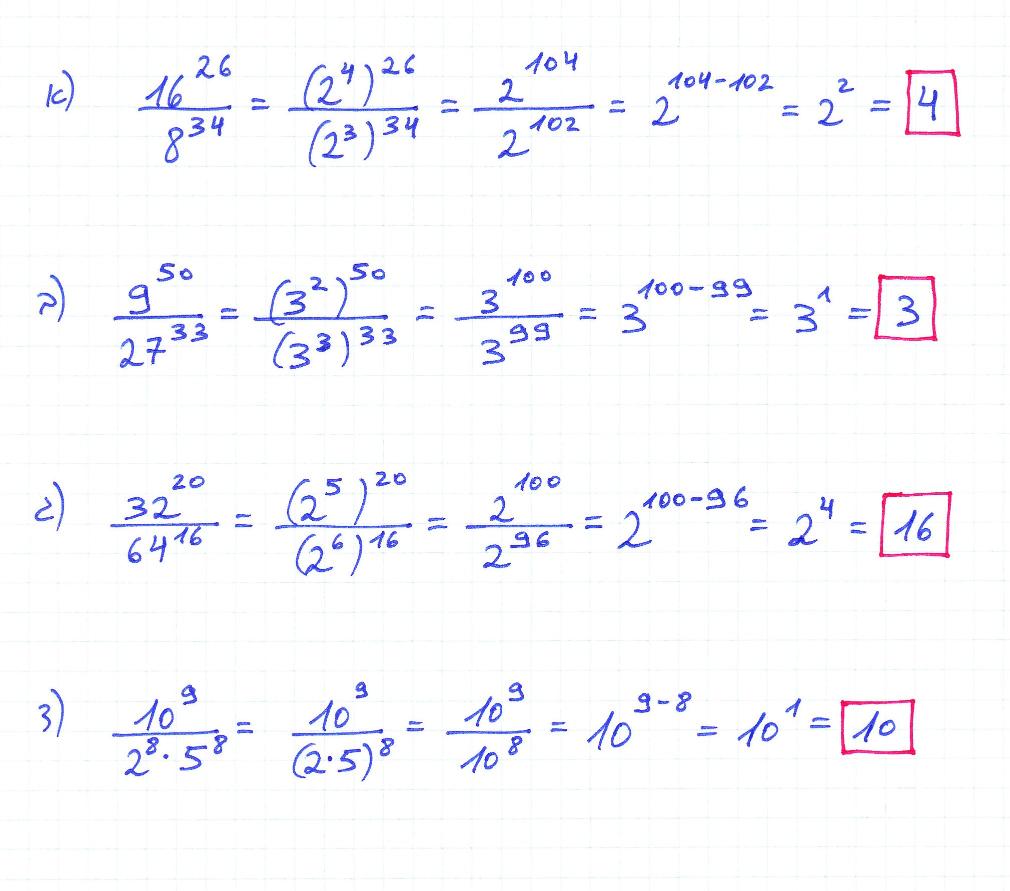 к) 16^26 / 8^34 = (2^4)^26 / (2^3)^34 = 2^104 / 2^102 = 2^(104-102) = 2^2 = 4
д) 9^50 / 27^33 = (3^2)^50 / (3^3)^33 = 3^100 / 3^99 = 3^(100-99) = 3^1 = 3
г) 32^20 / 64^16 = (2^5)^20 / (2^6)^16 = 2^100 / 2^96 = 2^(100-96) = 2^4 = 16
з) 10^9 / 2^8 · 5^8 = 10^9 / (2·5)^8 = 10^9 / 10^8 = 10^(9-8) = 10^1 = 10